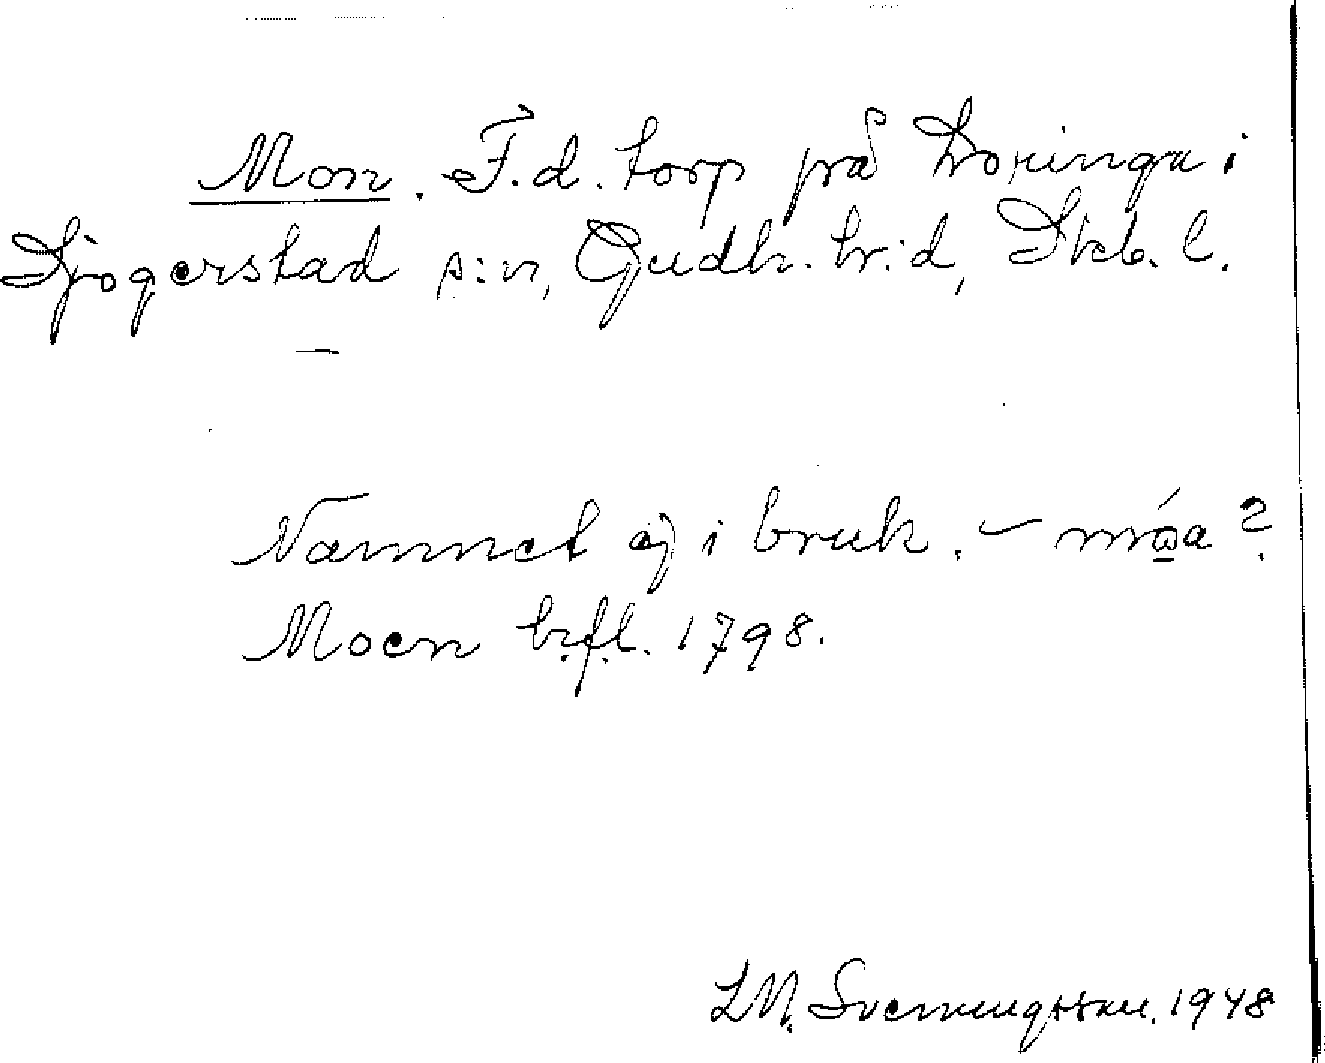 Mon. F.d. torp på Loringa i
Sjogerstad s:n, Gudh. hr:d, Skb. l.
—
Namnet ej i bruk. – móa?
Moen hrfl. 1798.
LM. Svenungsson. 1948